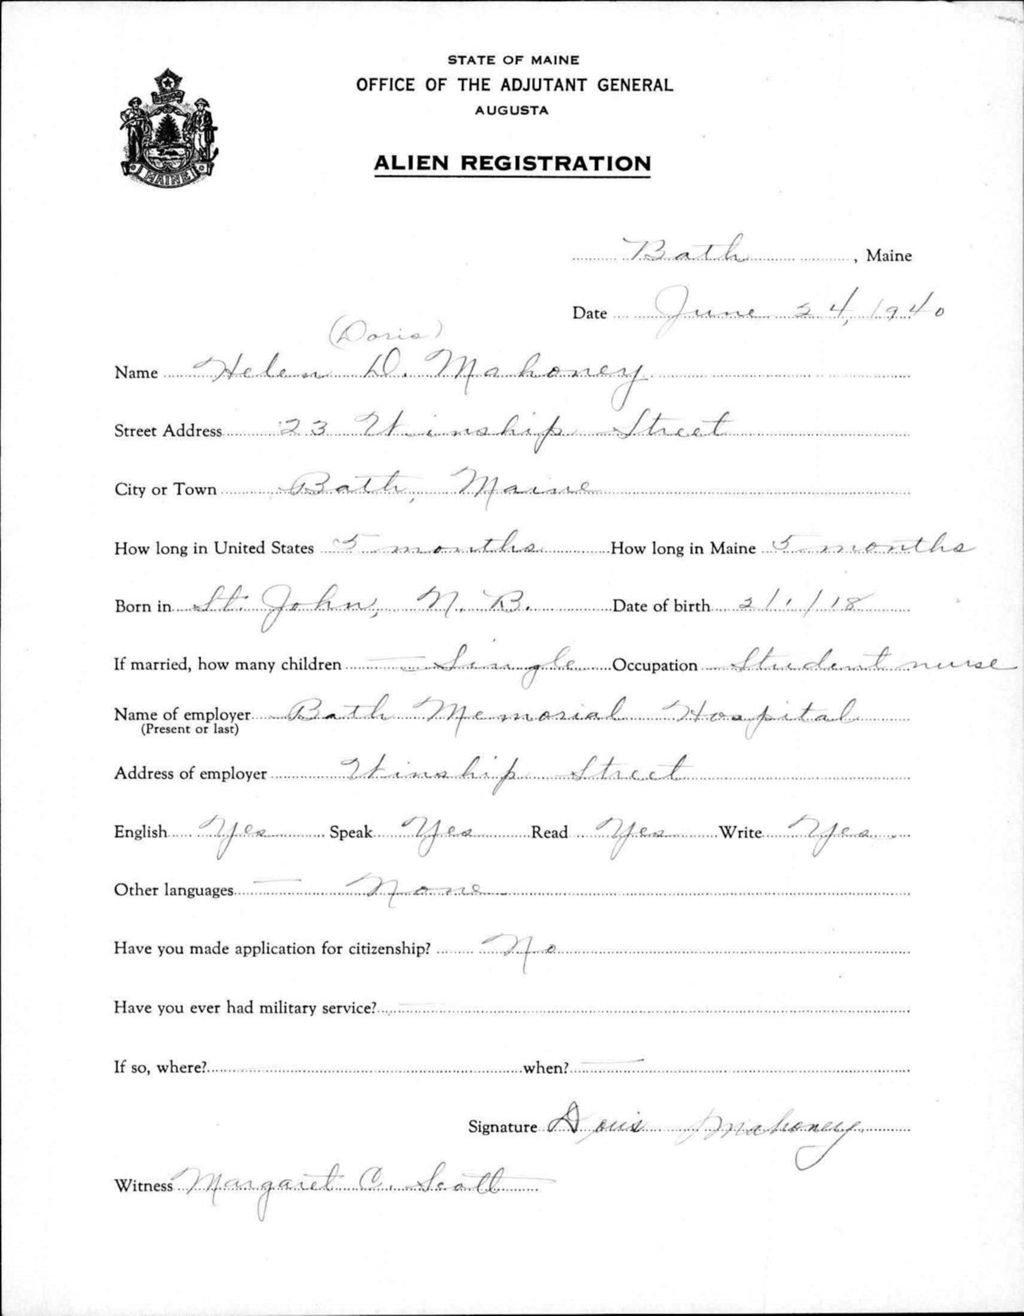 STATE OF MAINE
OFFICE OF THE ADJUTANT GENERAL
AUGUSTA
ALIEN REGISTRATION
MAINE
Bath, Maine
Date June 24, 1940
(Doris)
Name Helen D. Mahoney
Street Address 23 Winship Street
City or Town Bath, Maine
How long in United States 5 months How long in Maine 5 months
Born in St. John, N. B. Date of birth 2/1/18
If married, how many children — Single Occupation Student nurse
Name of employer Bath Memorial Hospital
(Present or last)
Address of employer Winship Street
English Yes Speak Yes Read Yes Write Yes
Other languages — None
Have you made application for citizenship? No
Have you ever had military service? —
If so, where? when? —
Signature Doris Mahoney
Witness Margaret C. Scott